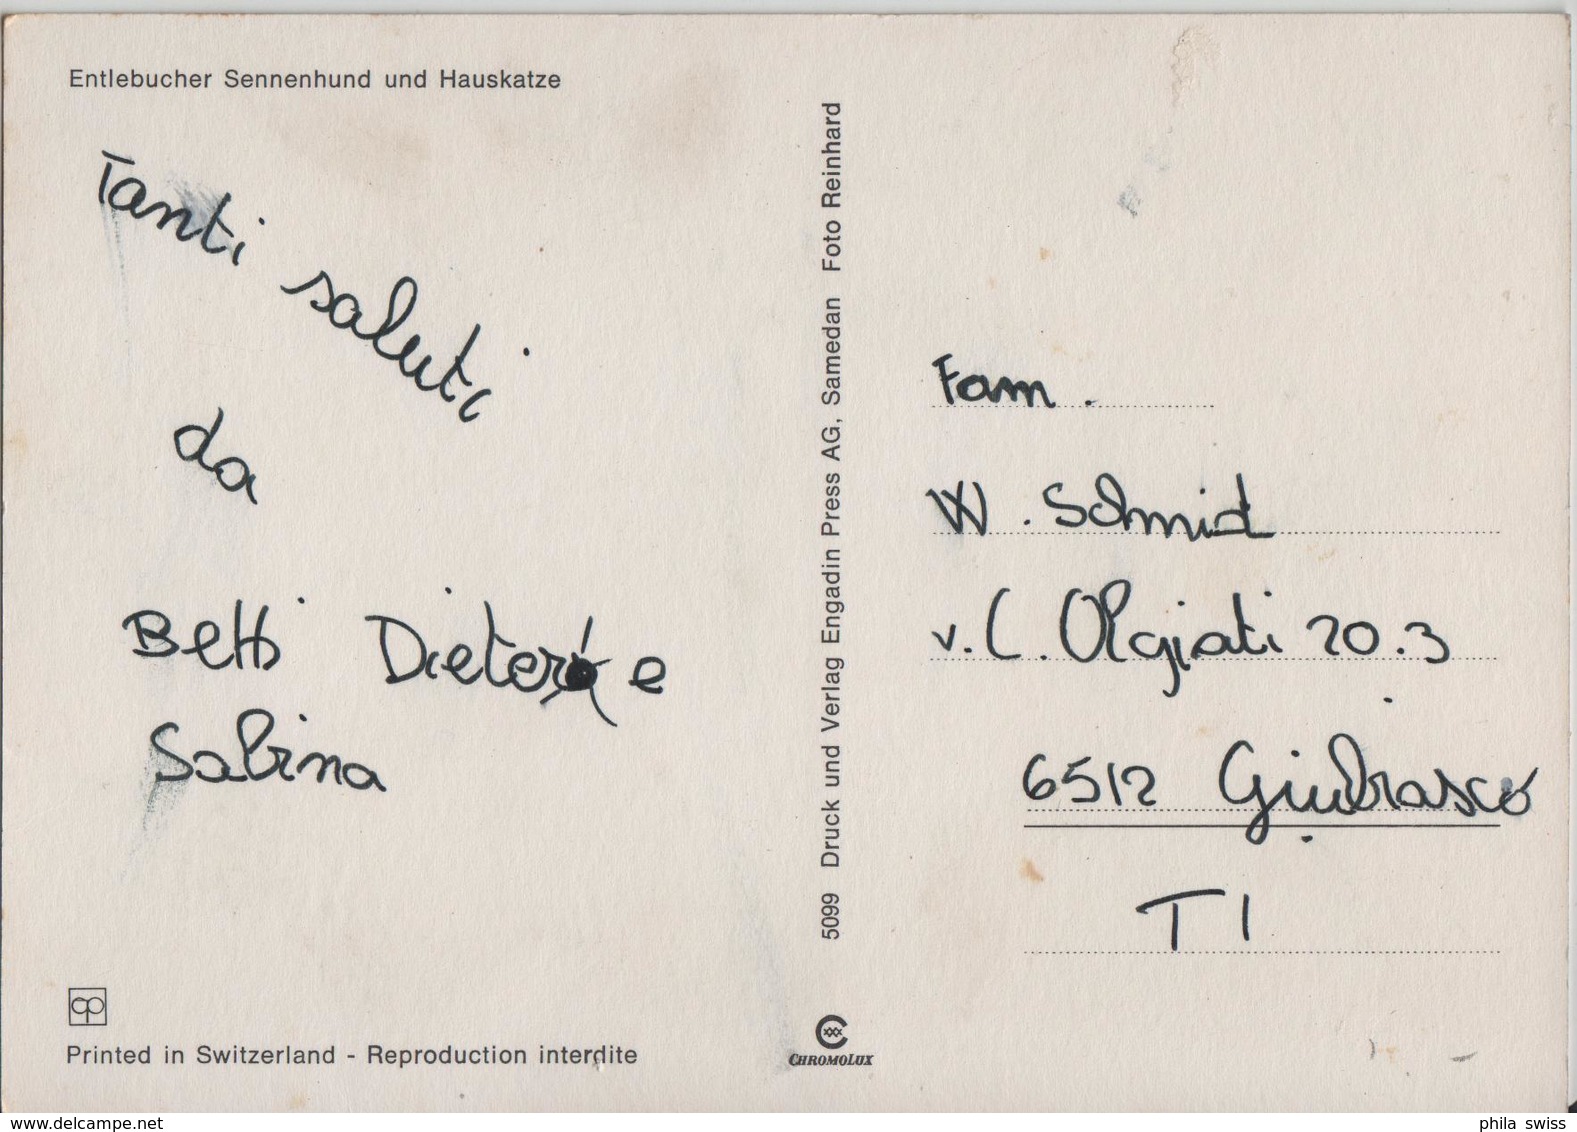 Entlebucher Sennenhund und Hauskatze
Tanti saluti
da
Betti Dieter e
Sabina
Printed in Switzerland - Reproduction interdite
5099 Druck und Verlag Engadin Press AG, Samedan Foto Reinhard
CHROMOLUX
Fam.
W. Schmid
v. C. Olgiati 20.3
6512 Giubiasco
TI
www.delcampe.net
phila swiss